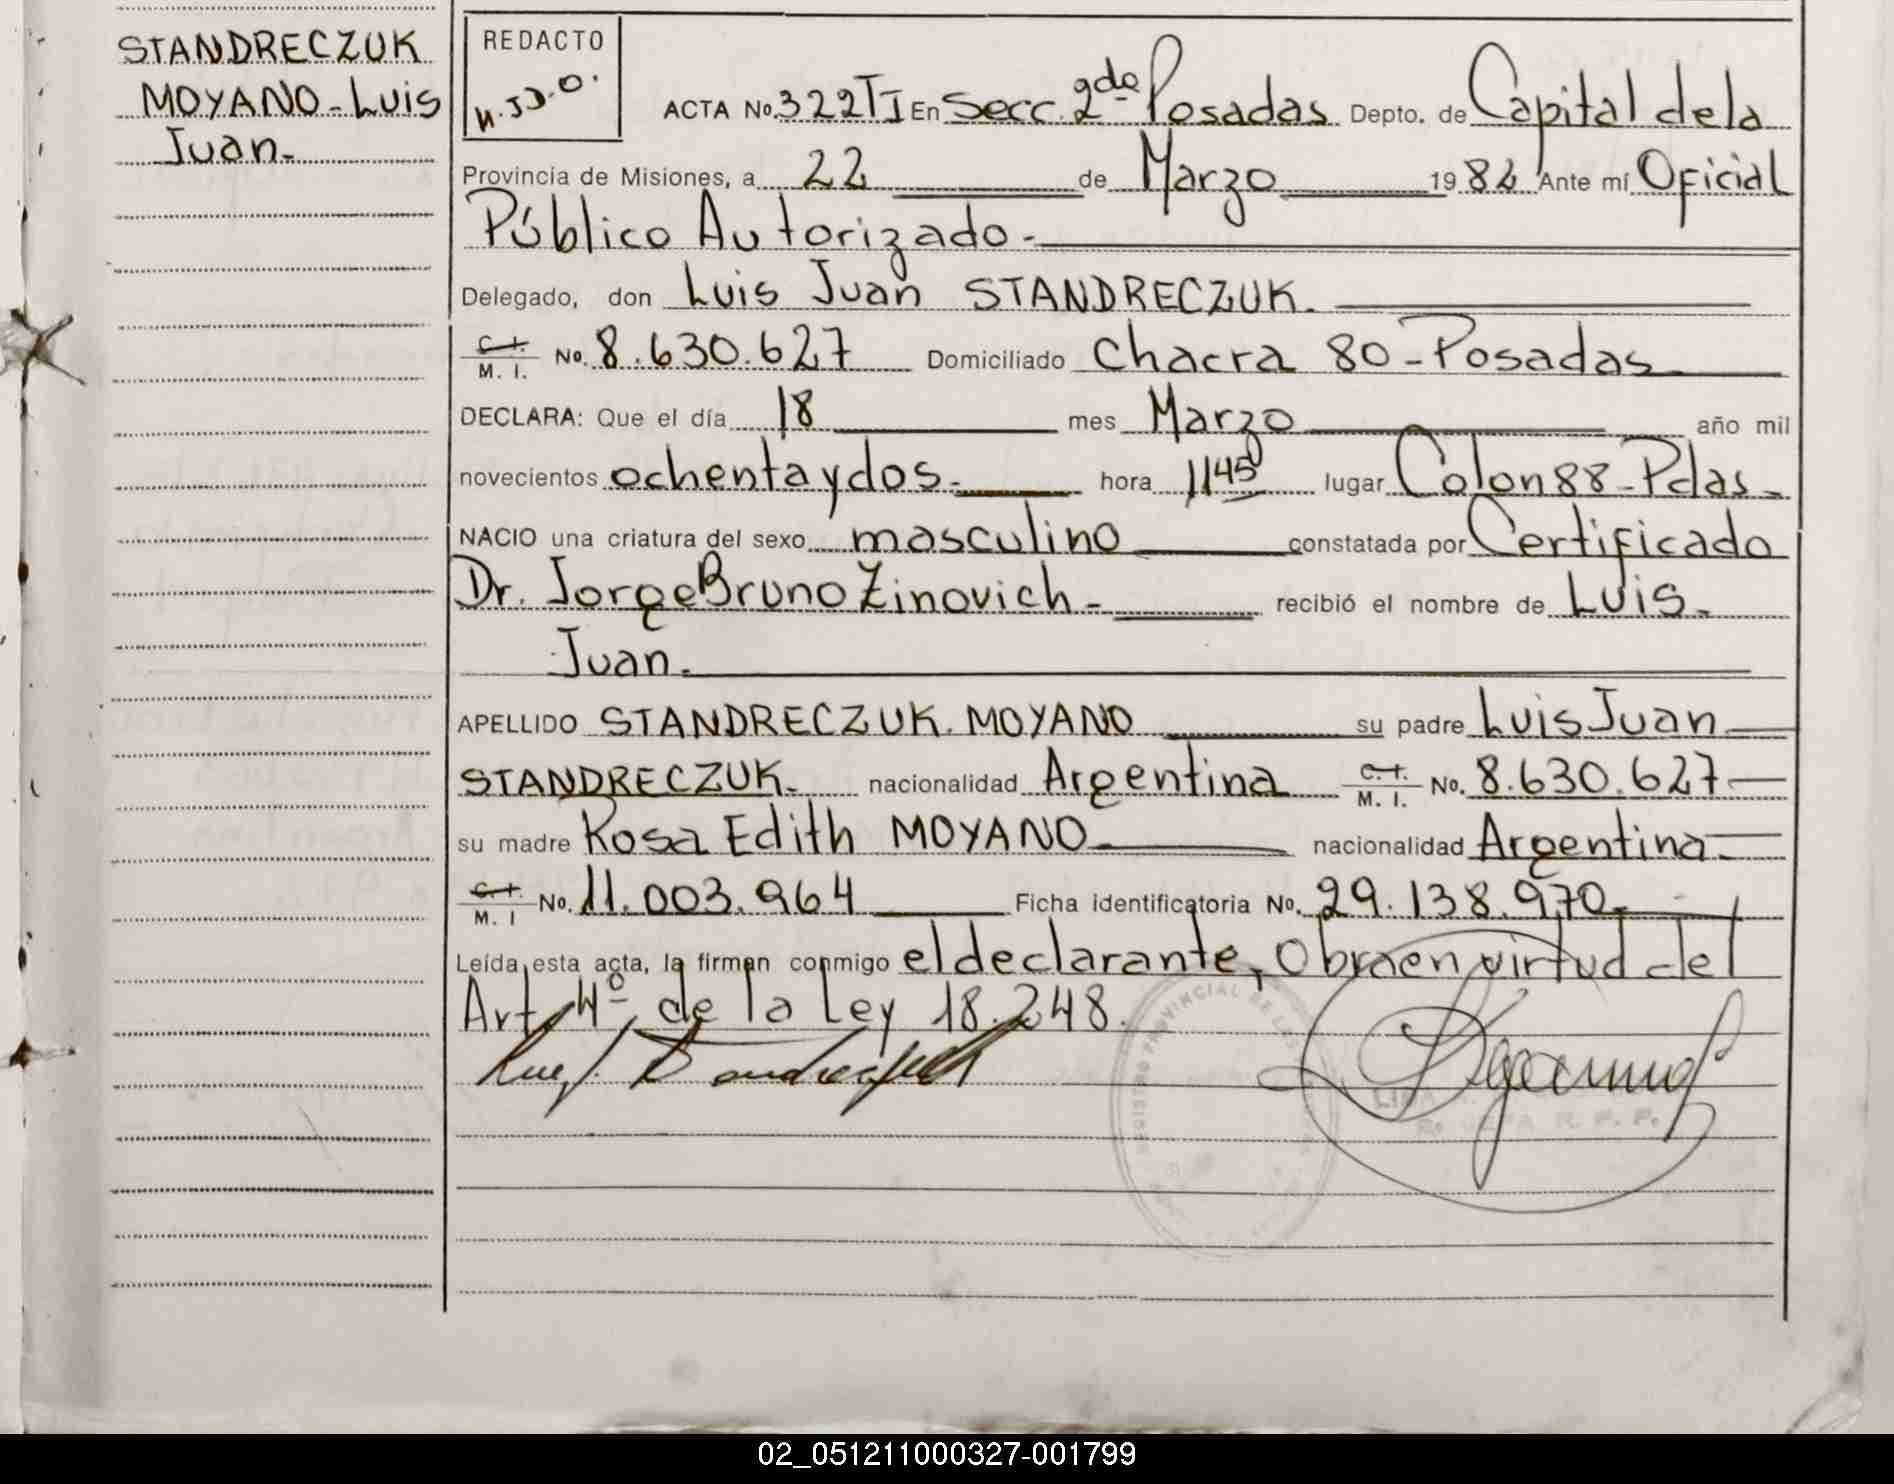 STANDRECZUK
MOYANO - Luis
Juan.-
REDACTO
ACTA No. 322 TI En Secc. 2da Posadas Depto. de Capital de la
Provincia de Misiones, a 22 de Marzo 1982 Ante mí Oficial
Público Autorizado.-
Delegado, don Luis Juan STANDRECZUK.
C. I. M. I. No. 8.630.627 Domiciliado Chacra 80 - Posadas
DECLARA: Que el día 18 mes Marzo año mil
novecientos ochenta y dos.- hora 11 45 lugar Colon 88 - Pdas.-
NACIO una criatura del sexo masculino constatada por Certificado
Dr. Jorge Bruno Zinovich.- recibió el nombre de Luis
Juan.
APELLIDO STANDRECZUK. MOYANO su padre Luis Juan
STANDRECZUK. nacionalidad Argentina C. I. M. I. No. 8.630.627
su madre Rosa Edith MOYANO nacionalidad Argentina
C. I. M. I No. 11.003.964 Ficha identificatoria No. 29.138.970
Leída esta acta, la firman conmigo el declarante, Obra en virtud del
Art. 4º de la Ley 18.248.
REGISTRO PROVINCIAL DE LAS
JEFA R. P. P.
02_051211000327-001799